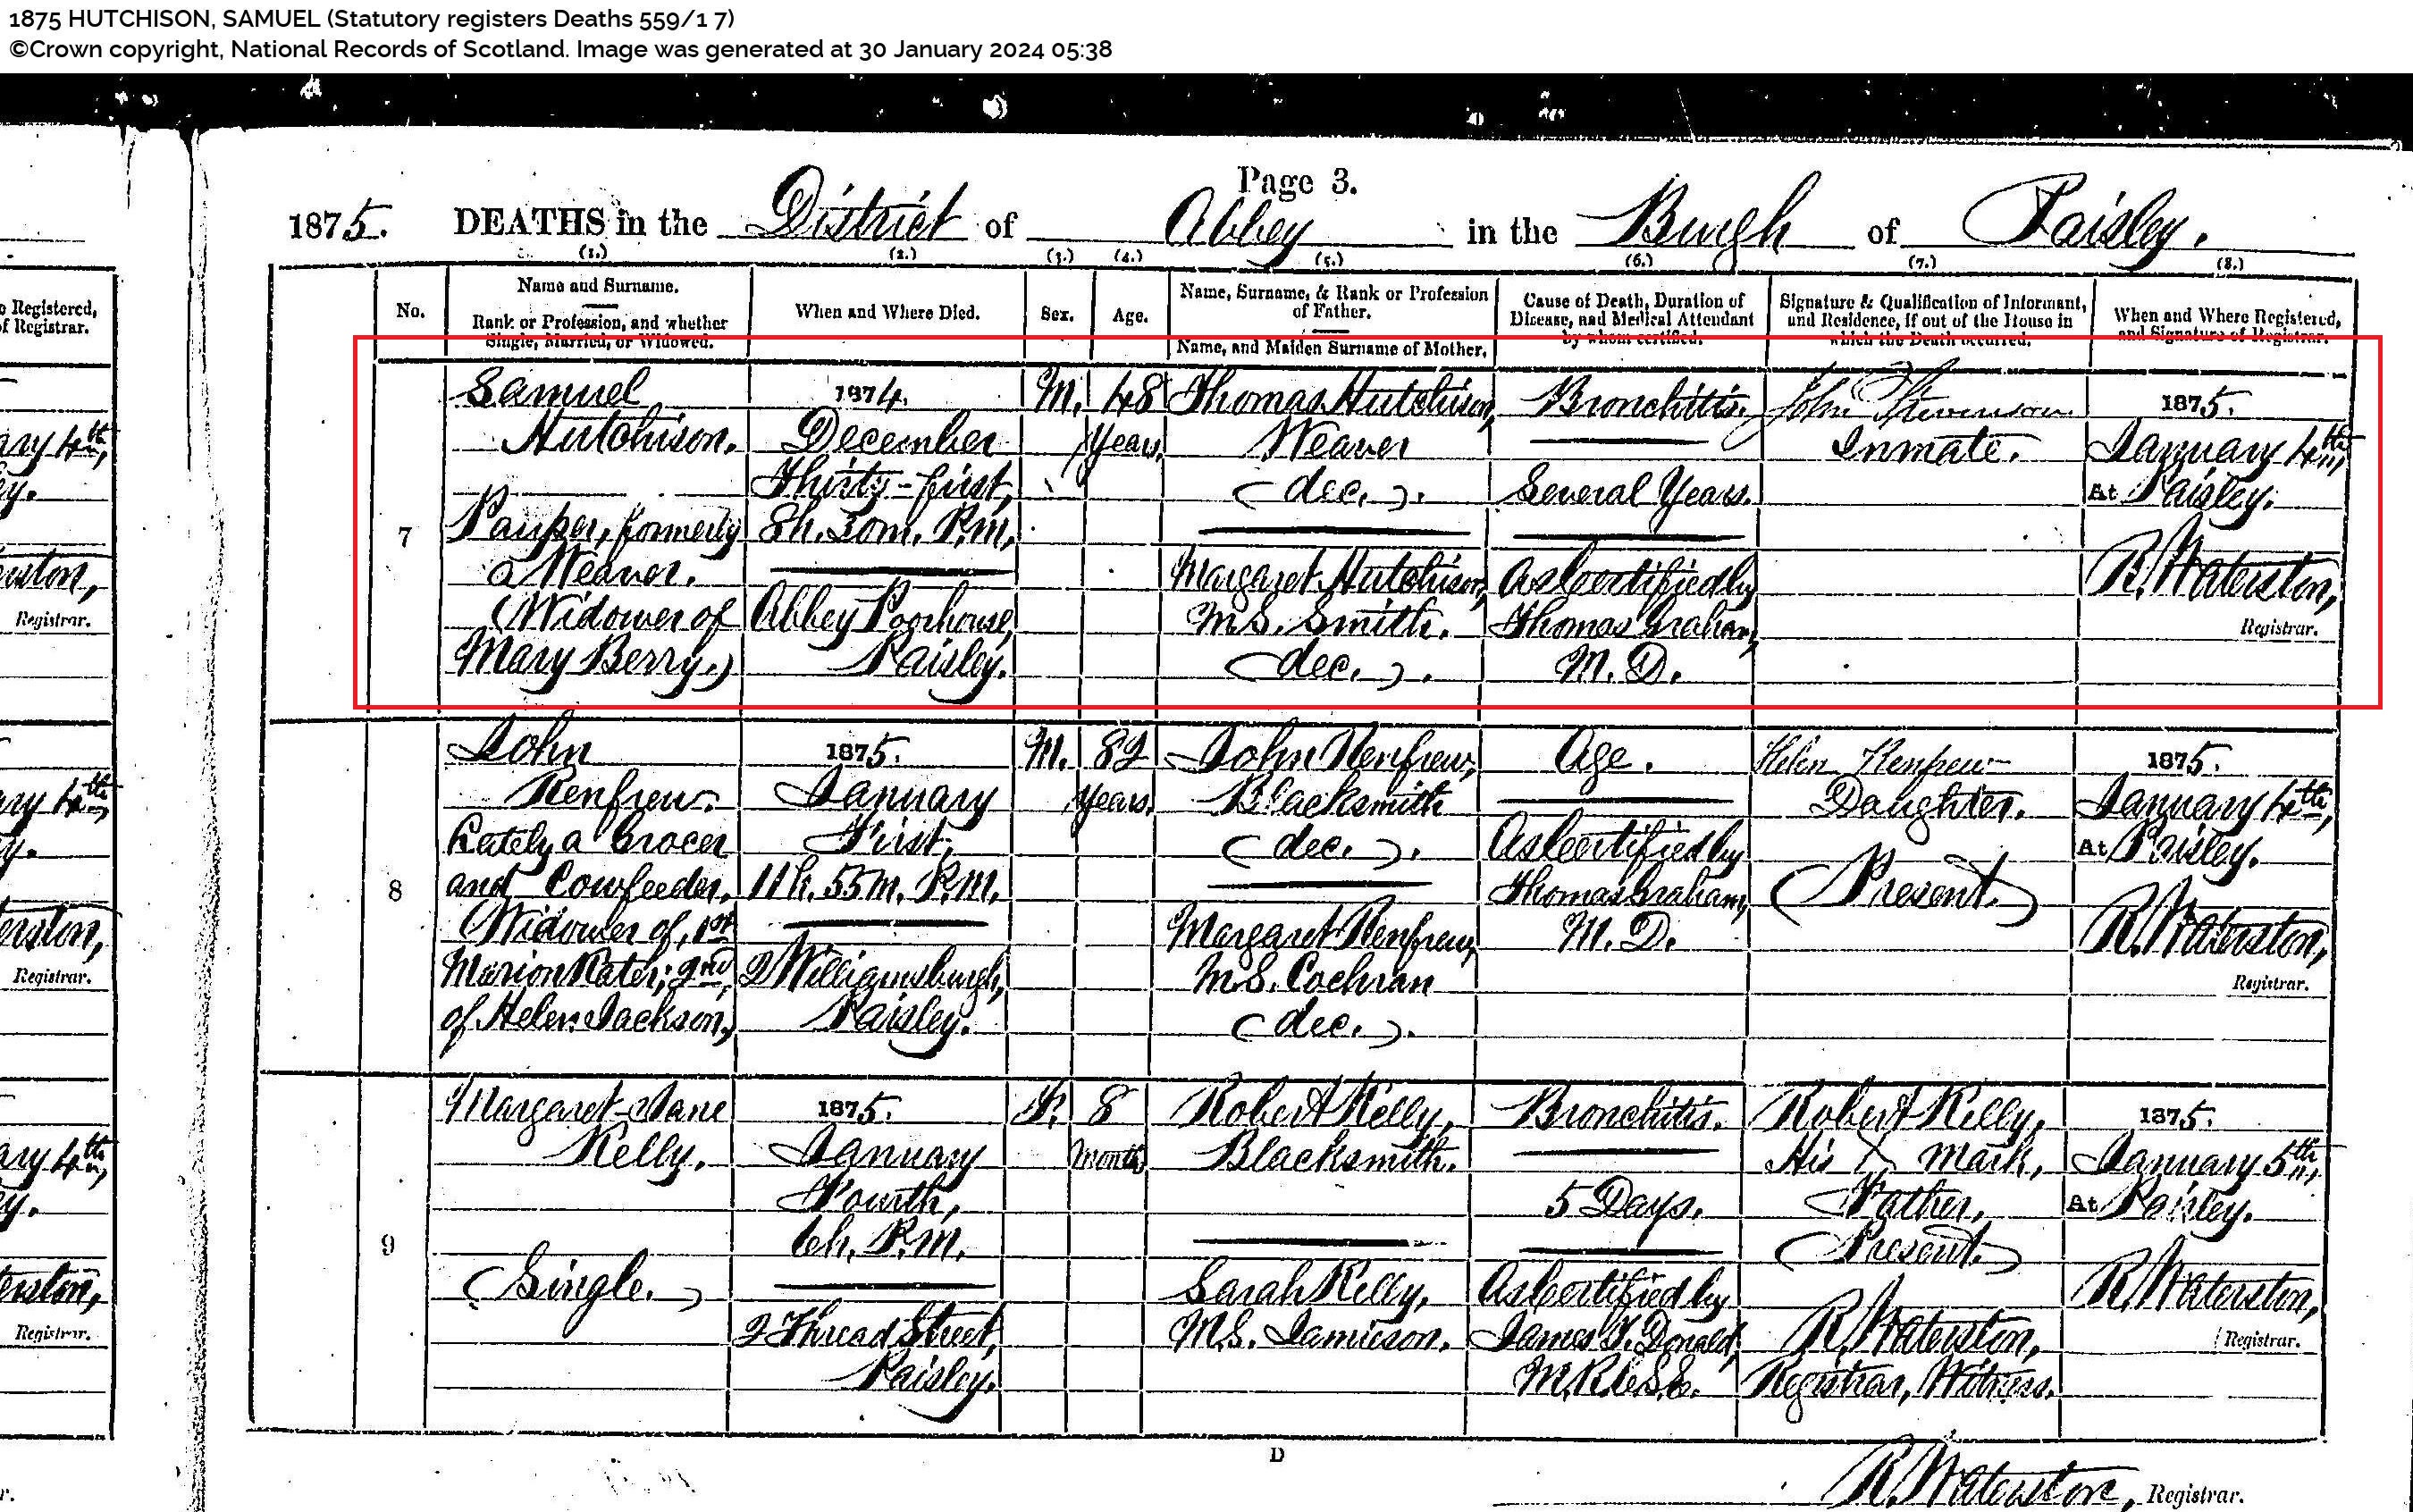 1875 HUTCHISON, SAMUEL (Statutory registers Deaths 559/1 7)
©Crown copyright, National Records of Scotland. Image was generated at 30 January 2024 05:38
Page 3.
1875. DEATHS in the District of Abbey in the Burgh of Paisley.
(1.) (2.) (3.) (4.) (5.) (6.) (7.) (8.)
No.
Name and Surname.
Rank or Profession, and whether
Single, Married, or Widowed.
When and Where Died.
Sex.
Age.
Name, Surname, & Rank or Profession
of Father.
Name, and Maiden Surname of Mother.
Cause of Death, Duration of
Disease, and Medical Attendant
by whom certified.
Signature & Qualification of Informant,
and Residence, if out of the House in
which the Death occurred.
When and Where Registered,
and Signature of Registrar.
7
Samuel
Hutchison.
Pauper, formerly
a Weaver.
(Widower of
Mary Berry.)
1874.
December
Thirty-first,
8h. 30m. P.M.
Abbey Poorhouse,
Paisley.
M.
48
Years.
Thomas Hutchison,
Weaver
(dec.).
Margaret Hutchison,
M.S. Smith.
(dec.).
Bronchitis.
Several Years.
As Certified by
Thomas Graham,
M.D.
John Stevenson
Inmate.
1875.
January 4th,
At Paisley.
R. Waterston,
Registrar.
8
John
Renfrew.
Lately a Grocer
and Cowfeeder.
(Widower of, 1st
Marion ; 2nd,
of Helen Jackson.)
1875.
January
First,
11h. 55m. P.M.
2 Williamsburgh,
Paisley.
M.
82
Years.
John Renfrew,
Blacksmith
(dec.).
Margaret Renfrew,
M.S. Cochran
(dec.).
Age.
As Certified by
Thomas Graham,
M.D.
Helen Renfrew
Daughter.
(Present.)
1875.
January 4th,
At Paisley.
R. Waterston,
Registrar.
9
Margaret Jane
Kelly.
(Single.)
1875.
January
Fourth,
6h. P.M.
2 Thread Street,
Paisley.
F.
8
Months
Robert Kelly,
Blacksmith.
Sarah Kelly,
M.S. Jamieson.
Bronchitis.
5 Days.
As Certified by
James Donald,
Robert Kelly,
His X mark,
Father,
(Present.)
R. Waterston,
Registrar, Witness.
1875.
January 5th,
At Paisley.
R. Waterston,
Registrar.
D
R. Waterston, Registrar.
Registered,
of Registrar.
Registrar.
Registrar.
Registrar.